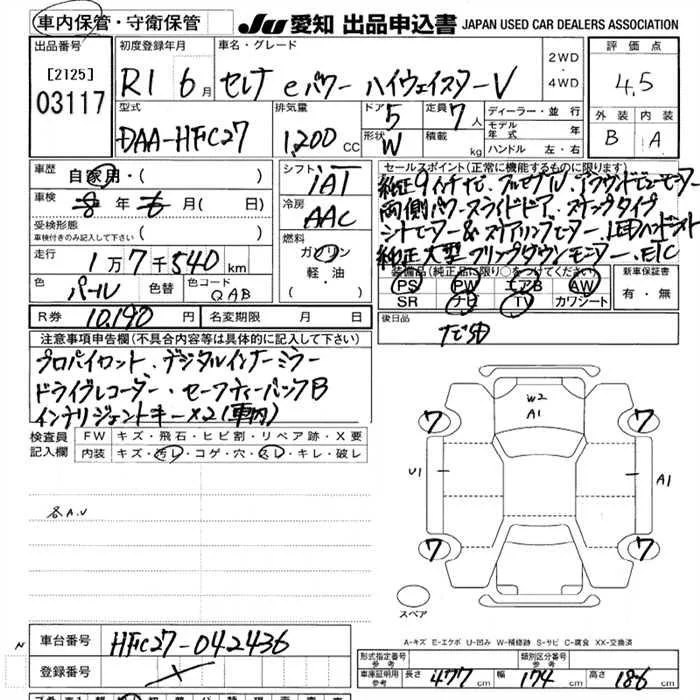 車内保管・守衛保管
JU 愛知 出品申込書 JAPAN USED CAR DEALERS ASSOCIATION
出品番号 初度登録年月 車名・グレード 評価点
[2125]
03117 R1 6月 セレナ eパワー ハイウェイスターV 2WD・4WD 4.5
型式 排気量 ドア 5 定員 7人 ディーラー・並行 外装 内装
DAA-HFC27 1,200CC 形状 W 積載 kg モデル年式 年 B A
ハンドル 左・右
車歴 自家用・( ) シフト IAT セールスポイント(正常に機能するものに限ります)
車検 8年6月(日) 冷房 AAC 純正9インチナビ、フルセグTV、アラウンドビューモニター
両側パワースライドドア、ステップタイプ
受検形態 車検付きのみ記入して下さい( ) 燃料 ガソリン 軽油・( )
シートヒーター&ステアリングヒーター、LEDヘッドライト
走行 1万7千540km 純正大型フリップダウンモニター、ETC
色 パール 色替 色コード QAB 装備品(純正品に限り○をつけてください) 新車保証書
PS PW エアB AW 有・無
SR ナビ TV カワシート
R券 10,190円 名変期限 月 日 後日品
ナビSD
注意事項申告欄(不具合内容等は具体的に記入して下さい)
プロパイロット、デジタルインナーミラー
ドライブレコーダー・セーフティーパックB
インテリジェントキー×2(車内)
検査員記入欄 FW キズ・飛石・ヒビ割・リペア跡・X要
内装 キズ・汚レ・コゲ・穴・スレ・キレ・破レ
W2
A1
7 7
U1 A1
各A.U
7 7
スペア
A-キズ E-エクボ U-凹み W-補修跡 S-サビ C-腐食 XX-交換済
N 車台番号 HFC27-042436
登録番号
形式指定番号 参考 類別区分番号 参考
車庫証明用 参考 長さ 477cm 幅 174cm 高さ 186cm